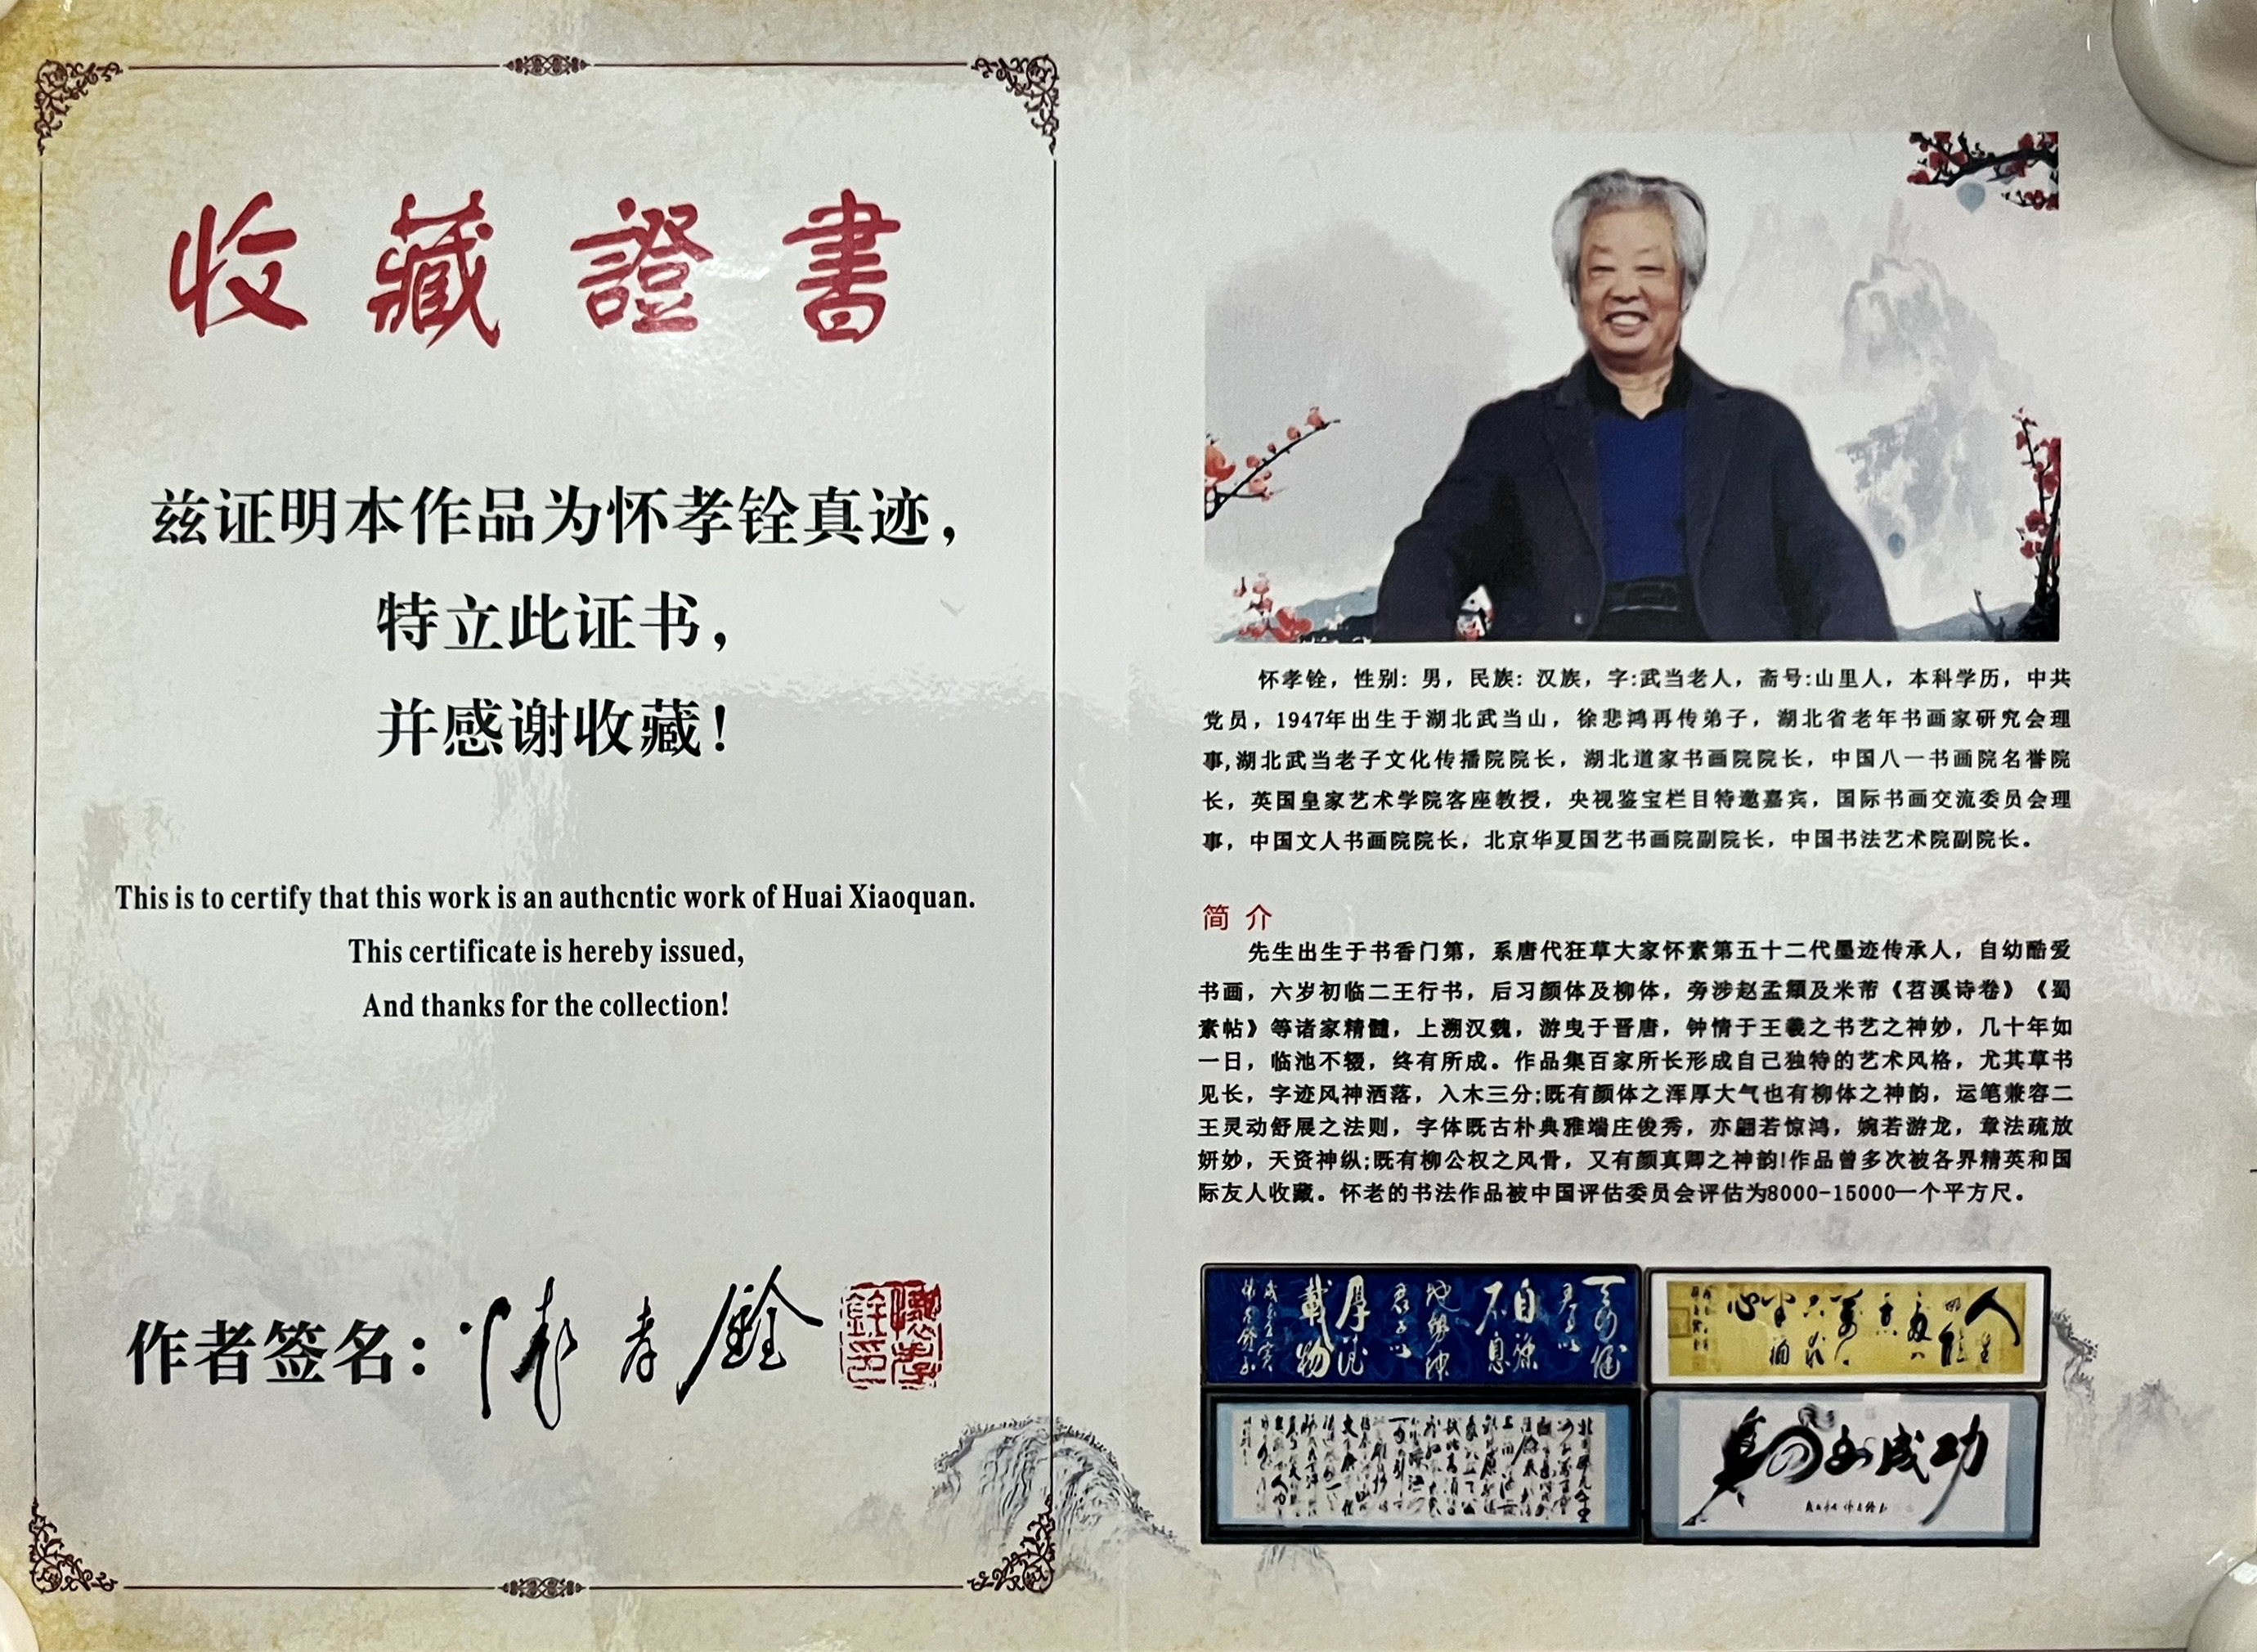 收藏證書
兹证明本作品为怀孝铨真迹，
特立此证书，
并感谢收藏！
This is to certify that this work is an authcntic work of Huai Xiaoquan.
This certificate is hereby issued,
And thanks for the collection!
作者签名：怀孝铨
怀孝铨，性别：男，民族：汉族，字:武当老人，斋号:山里人，本科学历，中共
党员，1947年出生于湖北武当山，徐悲鸿再传弟子，湖北省老年书画家研究会理
事,湖北武当老子文化传播院院长，湖北道家书画院院长，中国八一书画院名誉院
长，英国皇家艺术学院客座教授，央视鉴宝栏目特邀嘉宾，国际书画交流委员会理
事，中国文人书画院院长，北京华夏国艺书画院副院长，中国书法艺术院副院长。
简介
先生出生于书香门第，系唐代狂草大家怀素第五十二代墨迹传承人，自幼酷爱
书画，六岁初临二王行书，后习颜体及柳体，旁涉赵孟頫及米芾《苕溪诗卷》《蜀
素帖》等诸家精髓，上溯汉魏，游曳于晋唐，钟情于王羲之书艺之神妙，几十年如
一日，临池不辍，终有所成。作品集百家所长形成自己独特的艺术风格，尤其草书
见长，字迹风神洒落，入木三分;既有颜体之浑厚大气也有柳体之神韵，运笔兼容二
王灵动舒展之法则，字体既古朴典雅端庄俊秀，亦翩若惊鸿，婉若游龙，章法疏放
妍妙，天资神纵;既有柳公权之风骨，又有颜真卿之神韵!作品曾多次被各界精英和国
际友人收藏。怀老的书法作品被中国评估委员会评估为8000-15000一个平方尺。
自强
不息
厚德
載物
马到成功